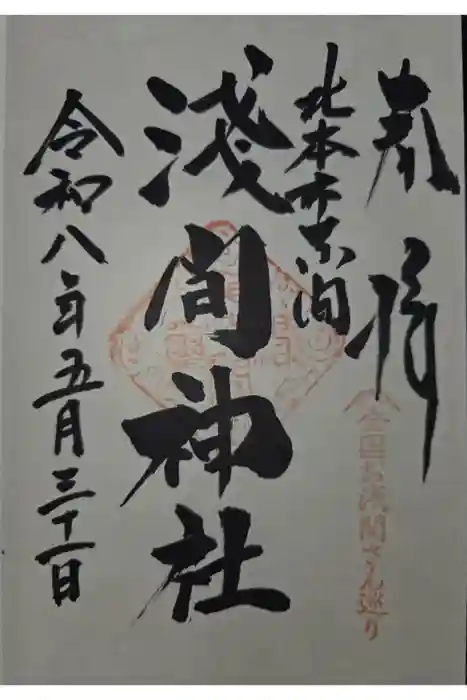 奉拝
全国お浅間さん巡り
北本市東間
淺間神社
令和八年五月三十一日